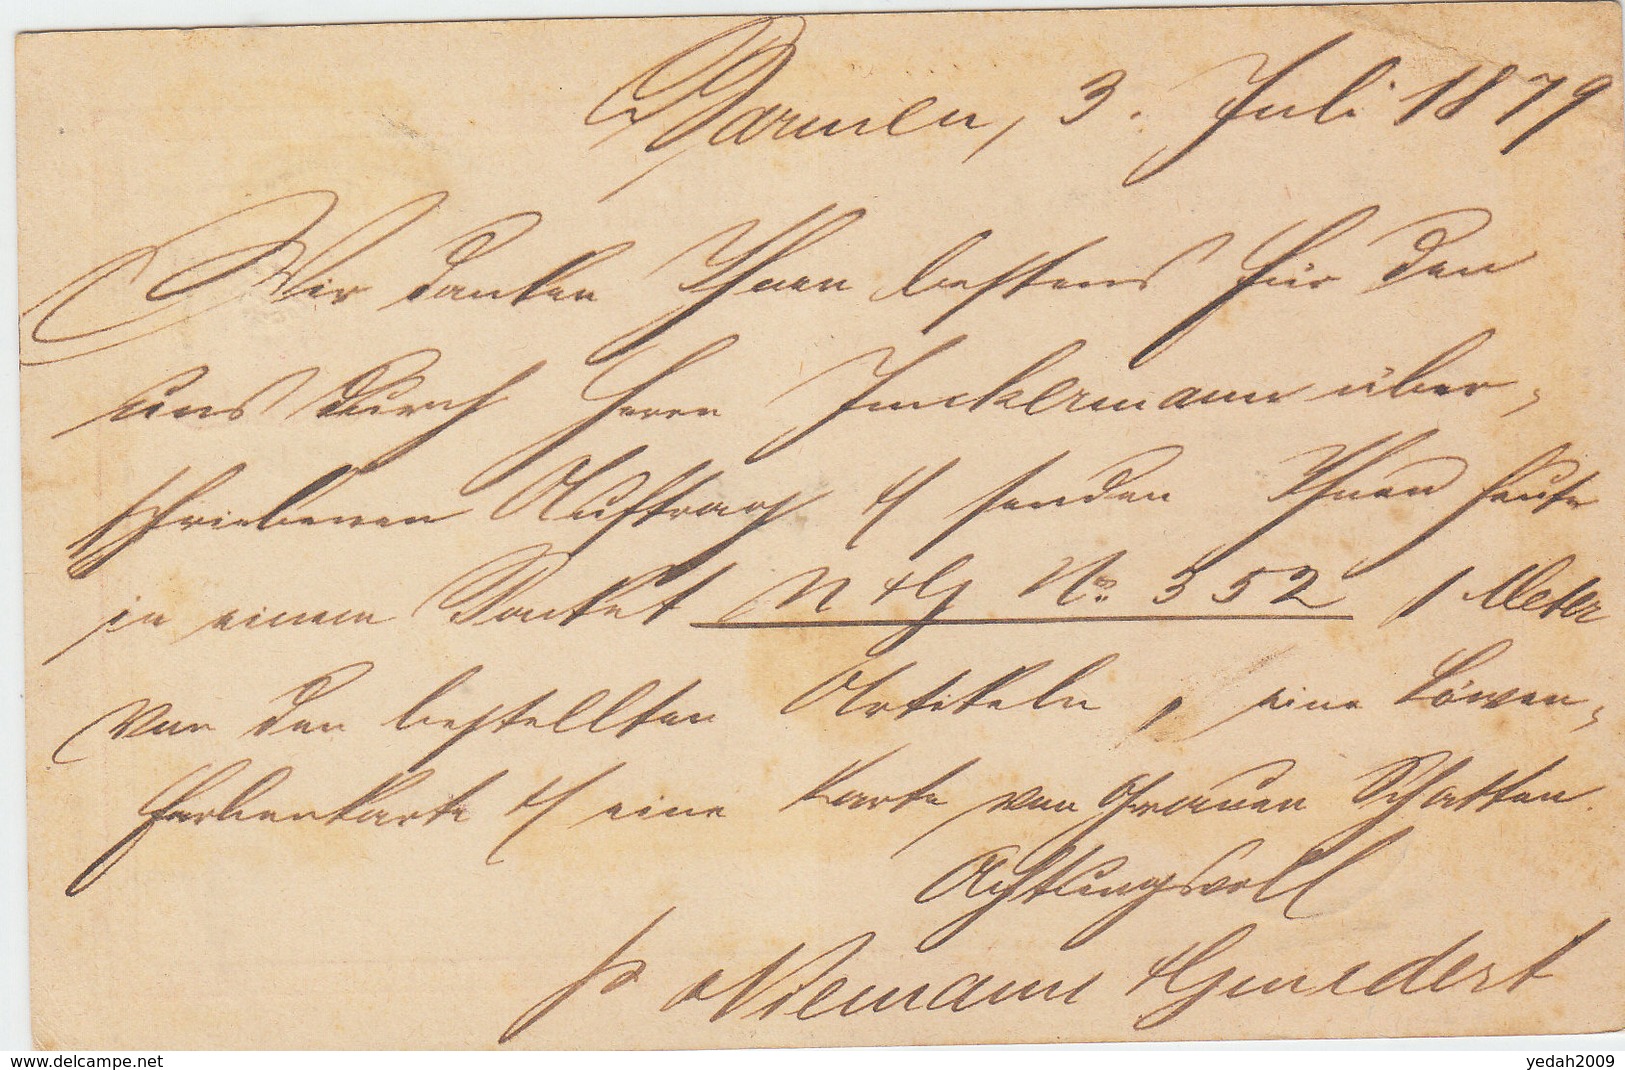 Barmen, 3. Juli 1879
Wir danken Ihnen bestens für den
uns durch Herrn Junckermann über-
schriebenen Auftrag & senden Ihnen heute
in einem Packet N & G No 352 1 Meter
von den bestellten Artikeln, eine
farbenkarte & eine Karte von Grauen Schatten.
Achtungsvoll
p Niemann & Gundert
www.delcampe.net
yedah2009